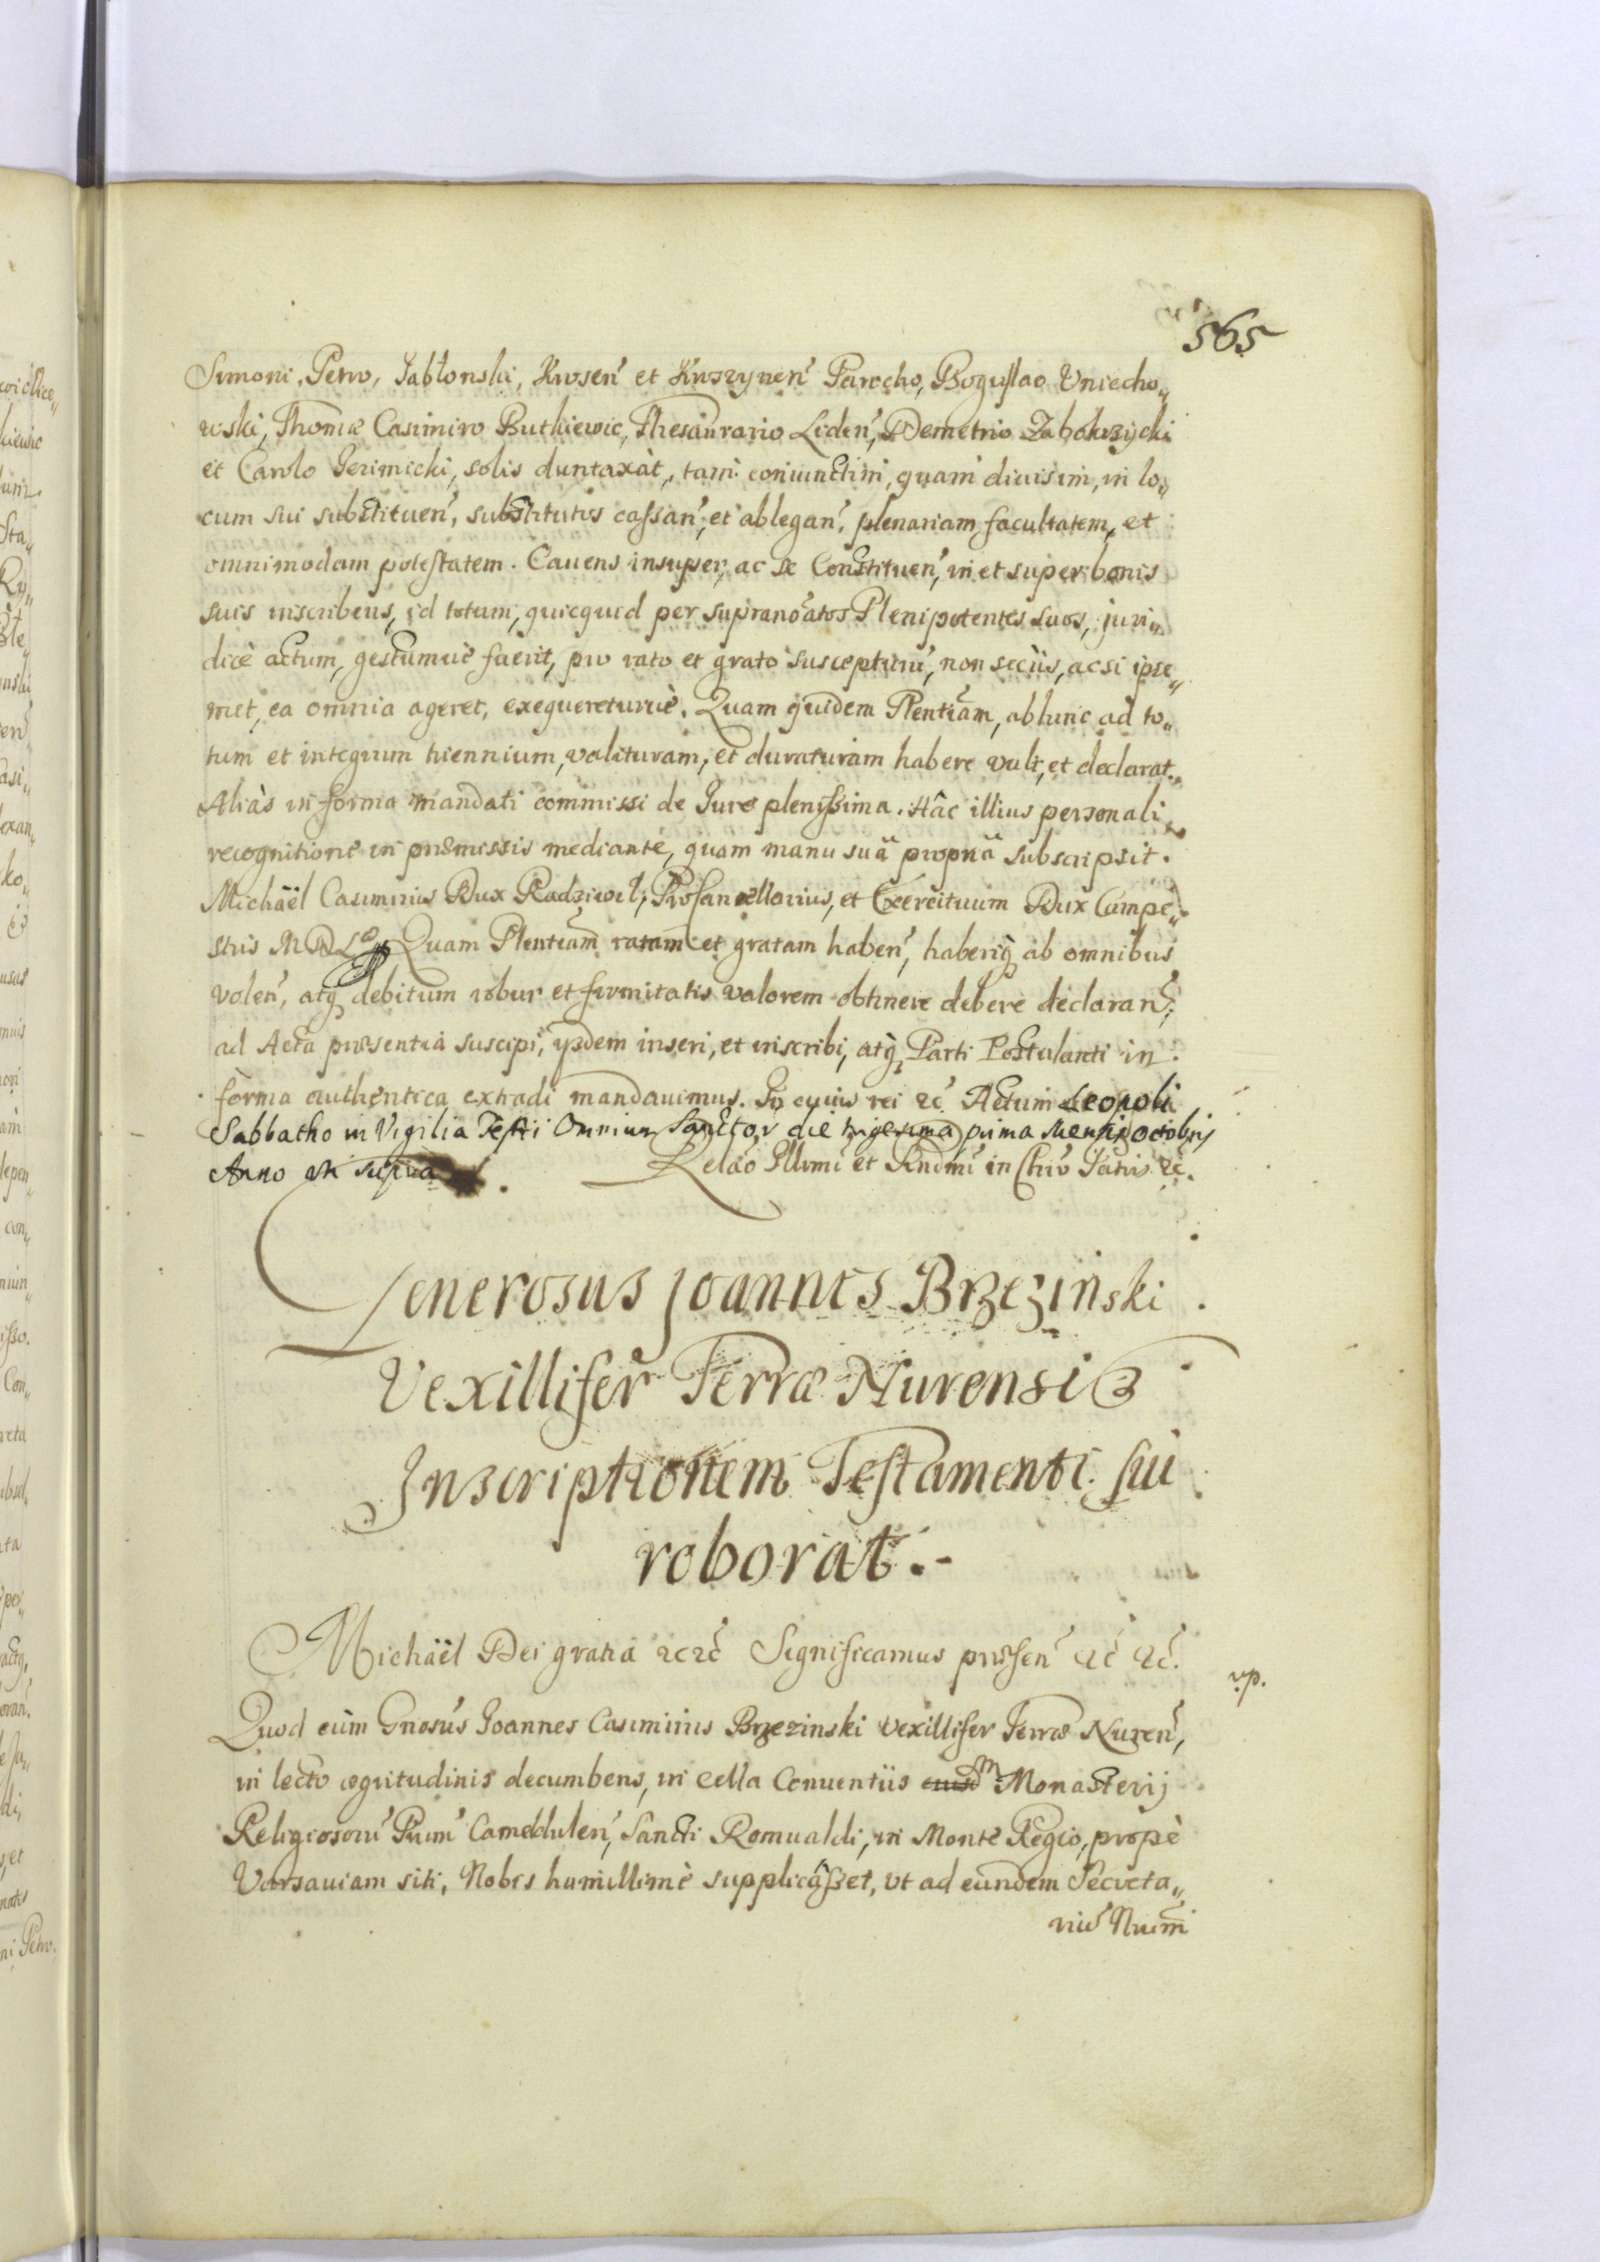 565
Simoni, Petro, Jabłonski, Krosen̄ et Kroszynen̄ Parocho, Boguslao Uniecho„
wski, Thomæ Casimiro Butkiewic, Thesaurario Liden̄, Demetrio Zabokrzycki
et Carolo Jerimicki, solis duntaxàt, tam coniunctim, quam diuisim, in lo„
cum sui substituen̄, substitutos cassan̄, et ablegan̄, plenariam facultatem, et
omnimodam potestatem. Cauens insuper, ac se Constituen̄, in et super bonis
suis inscribens, id totum, quicquid per supranoātos Plenipotentes suos, juri„
dicè actum, gestumuè fuerit, pro rato et grato suscepturū, non secùs, acsi ipse„
met, ea omnia ageret, exequereturuè. Quam quidem Plentiam, ab hinc ad to„
tum et integrum triennium, valituram, et duraturam habere vult, et declarat.
Aliàs in forma mandati commissi de Jure plenissima. Hâc illius personali
recognitione in præmissis mediante, quam manu suâ propriâ subscripsit.
Michaël Casimirus Dux Radziwił, ProCancellarius, et Exercituum Dux Campe„
stris M D L. Quam Plentiam ratam et gratam haben̄, haberiq̃ ab omnibus
volen̄, atq̃ debitum robur et firmitatis valorem obtinere debere declaran̄,
ad Acta præsentia suscipi, ijsdem inseri, et inscribi, atq̃ Parti Postulanti in
forma authentica extradi mandauimus. In cuius rei &c̄ Actum Leopoli
Sabbatho in Vigilia Festi Omnium Sanctor die trigesima prima Mensis octobris
Anno ut supra. Relāo Illrmi et Rndmi in Chrō Patris &c̄.
Generosus Joannes Brzezinski
Vexillifer Terræ Nurensis
Inscriptionem Testamenti sui
roborat.-
Michaël Dei gratia &c &c̄ Significamus præsen̄ &c̄ &c̄.
vp.
Quod cùm Gnosus Joannes Casimirus Brzezinski Vexillifer Terræ Nuren̄,
in lecto ægritudinis decumbens, in cella Conuentûs Monasterij
Religiosorū Prum̄ Cameldulen̄, Sancti Romualdi, in Monte Regio, propè
Varsauiam siti, Nobis humillimè supplicâsset, vt ad eundem Secreta„
riū Nrum̄